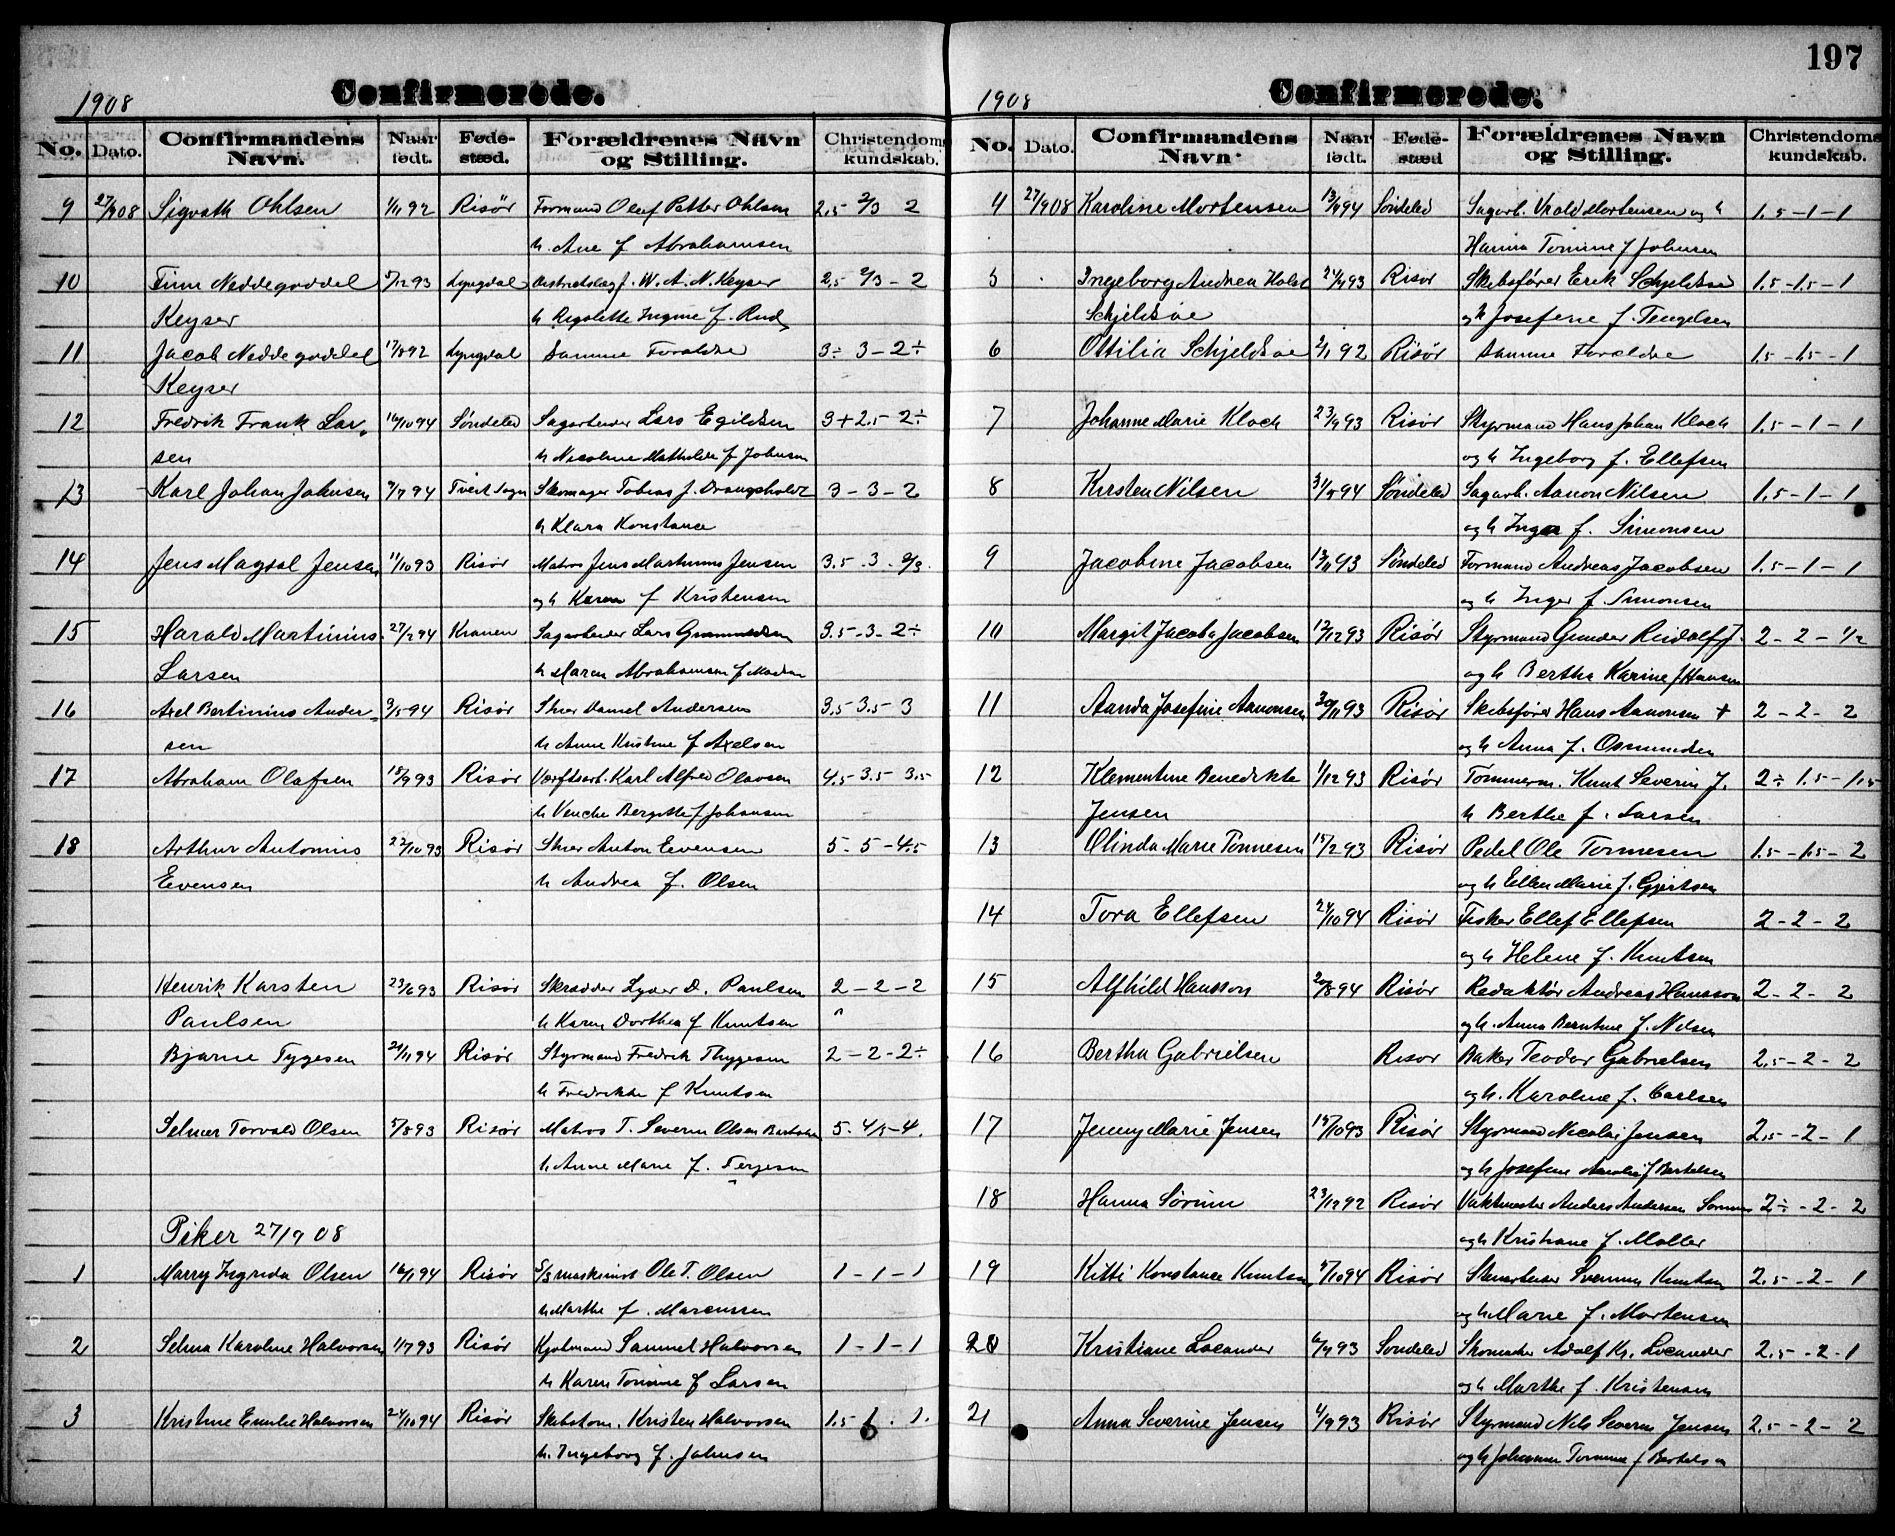 197
1908 Confirmerede.
No. Dato. Confirmandens Navn. Naar født. Fødested. Forældrenes Navn og Stilling. Christendomskundskab.
9 27/9 08 Sigvath Ohlsen 1/11 92 Risör Formand Oluf Petter Ohlsen 2,5 2/3 2
h. Ane f Abrahamsen
10 Finn Neddegoddel 5/12 93 Lyngdal Distriktslæg f. W. A. N. Keyser 2,5 2/3 - 2
Keyser h Regolette Ingine f. Rud
11 Jacob Neddegoddel 17/8 92 Lyngdal Samme Foraldre 3÷ 3 - 2÷
Keyser
12 Fredrik Frank Lar- 16/10 94 Søndeled Sagarbeider Lars Egildsen 3+ 2,5 - 2÷
sen h Nicoline Mathilde f Johnsen
13 Karl Johan Johnsen 9/7 94 Tvedt Sogn Skomager Tobias J. Drangsholdt 3 - 3 - 2
h Klara Konstance
14 Jens Magdal Jensen 11/10 93 Risör Matros Jens Martinius Jensen 3,5 - 3 - 2/3.
og h Karen f Kristensen
15 Harald Martinius 27/2 94 Kranen Sagarbeider Lars 3,5 - 3 - 2÷
Larsen h Maren Abrahamsen f Madsen
16 Axel Bertinius Ander- 3/5 94 Risör Skrer Daniel Andersen 3,5 - 3,5 - 3
sen h Anne Kristine f Axelsen
17 Abraham Olafsen 18/9 93 Risør Værftsarb. Karl Alfred Olavsen 4,5 - 3,5 - 3,5
h Venche Bergitte f Johansen
18 Arthur Antonius 22/10 93 Risør Skrer Anton Evensen 5 - 5 - 4,5
Evensen h Andrea f. Olsen
Henrik Karsten 23/6 93 Risör Skrædder Lyder D. Paulsen 2 - 2 - 2
Paulsen h Karen Dorthea f Knutsen "
Bjarne Tygesen 21/11 94 Risör Styrmand Fredrik Thygesen 2 - 2 - 2÷
h Fredrikke f Knutsen
Selmer Torvald Olsen 5/8 93 Risör Matros T. Severin Olsen 5 - 4/5 - 4.
h Anne Marie f. Terjesen
Piker 27/9 08
1 Marry Ingrida Olsen 16/1 94 Risör S/S maskinist Ole T. Olsen 1 - 1 - 1
h Marthe f. Marcussen
2 Selma Karoline Halvorsen 1/7 93 Risør Kjølmand Samuel Halvorsen 1 - 1 - 1
h Karen Tomine f Larsen
3 Kristine Emilie Halvorsen 24/10 94 Risör Skibstøm. Kristen Halvorsen 1,5 - 1 - 1.
h. Ingeborg f. Johnsen
1908 Confirmerede.
No. Dato. Confirmandens Navn Naar født. Fødested Forældrenes Navn og Stilling. Christendomskundskab.
4 27/9 08 Karoline Mortensen 13/4 94 Søndeled Sagarb. Vrold Mortensen og h 1,5 - 1 - 1
Hanna Tomine f Johnsen
5 Ingeborg Andrea Holst 24/9 93 Risør Skibsfører Erik Schjeldsøe 1,5 - 1,5 - 1
Schjeldsøe og h Josefine f. Tengelsen
6 Ottilia Schjeldsøe 2/1 92 Risør samme Forældre 1,5 - 1,5 - 1
7 Johanne Marie Kloch 23/9 93 Risør Styrmand Hans Johan Kloch 1,5 - 1 - 1
og h Ingeborg f. Ellefsen
8 Kirsten Nilsen 31/8 94 Søndeled Sagarb. Aanon Nilsen 1,5 - 1 - 1
og h Inger f. Simonsen
9 Jacobine Jacobsen 13/11 93 Søndeled Formand Andreas Jacobsen 1,5 - 1 - 1
og h Inger f. Simonsen
10 Margit Jacoba Jacobsen 12/12 93 Risør Styrmand Gunder Reidolf J. 2 - 2 - 1/2
og h Bertha Karine f Hansen
11 Aanda Josefine Aanonsen 30/11 93 Risør Skibsfører Hans Aanonsen + 2 - 2 - 2
og h Anna f. Osmundsen
12 Klementine Benedikte 1/12 93 Risør Tømmerm. Knut Severin J. 2÷ 1,5 - 1,5
Jensen h Berthe f. Larsen
13 Olinda Marie Tønnesen 15/2 93 Risør Pedel Ole Tønnesen 1,5 - 1,5 - 2
og h Ellen Marie f. Gjertsen
14 Tora Ellefsen 24/10 94 Risör Fisker Ellef Ellefsen 2 - 2 - 2
og h Helene f. Knutsen
15 Alfhild Hansson 20/8 94 Risör Redaktør Andreas Hansson 2 - 2 - 2
og h. Anna Berntine f. Nilsen
16 Bertha Gabrielsen Risør Baker Teodor Gabrielsen 2,5 - 2 - 2
og h. Karoline f. Carlsen
17 Jenny Marie Jensen 15/10 93 Risör Styrmand Nicolai Jensen 2,5 - 2 - 1
og h Josefine Amalie f Bertelsen
18 Hanna Sørum 23/12 92 Risör Vaktmester Anders Andersen Sørum 2÷ - 2 - 2
og h Kristiane f. Møller
19 Kitti Konstance Knutsen 5/10 94 Risör Stenarbeider Svenning Knutsen 2,5 - 2 - 1
og h Marie f. Mortensen
20 Kristiane Locander 6/9 93 Søndeled Skomaker Adolf Kr. Locander 2,5 - 2 - 1
og h Marthe f. Kristensen
21 Anna Severine Jensen 4/9 93 Risör Styrmand Nils Severin Jensen 2,5 - 2 - 2
og h Johanne Tomine f Bertelsen